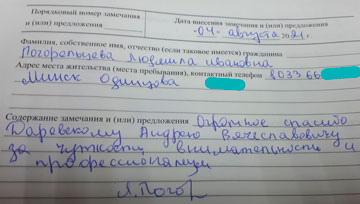 Порядковый номер замечания
и (или) предложения
Дата внесения замечания и (или) предложения
«04» августа 2021 г.
Фамилия, собственное имя, отчество (если таковое имеется) гражданина
Погорельцева Людмила Ивановна
Адрес места жительства (места пребывания), контактный телефон 8033 66
Минск Одинцова
Содержание замечания и (или) предложения Огромное спасибо
Даревскому Андрею Вячеславовичу
за чуткость внимательность и
профессионализм
Л.Погор